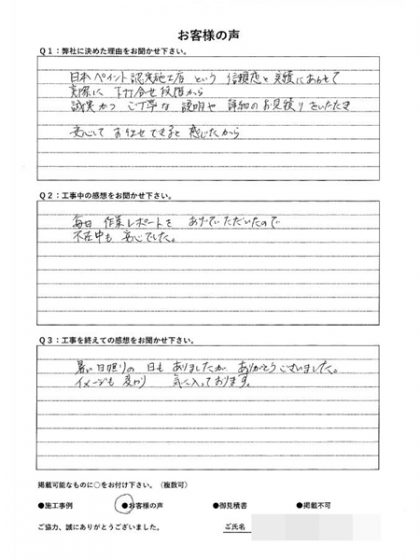 お客様の声
Q1：弊社に決めた理由をお聞かせ下さい。
日本ペイント認定施工店 という 信頼感と実績にあわせて
実際に 打合せ段階から
誠実かつ ご丁寧な 説明や 詳細のお見積りをいただき
安心して お任せできると 感じたから
Q2：工事中の感想をお聞かせ下さい。
毎日 作業レポートを あげていただいたので
不在中も 安心でした。
Q3：工事を終えての感想をお聞かせ下さい。
暑い日照りの 日も ありましたが ありがとうございました。
イメージも変わり 気に入っております。
掲載可能なものに○をお付け下さい。（複数可）
●施工事例 ●お客様の声 ●御見積書 ●掲載不可
ご協力、誠にありがとうございました。 ご氏名